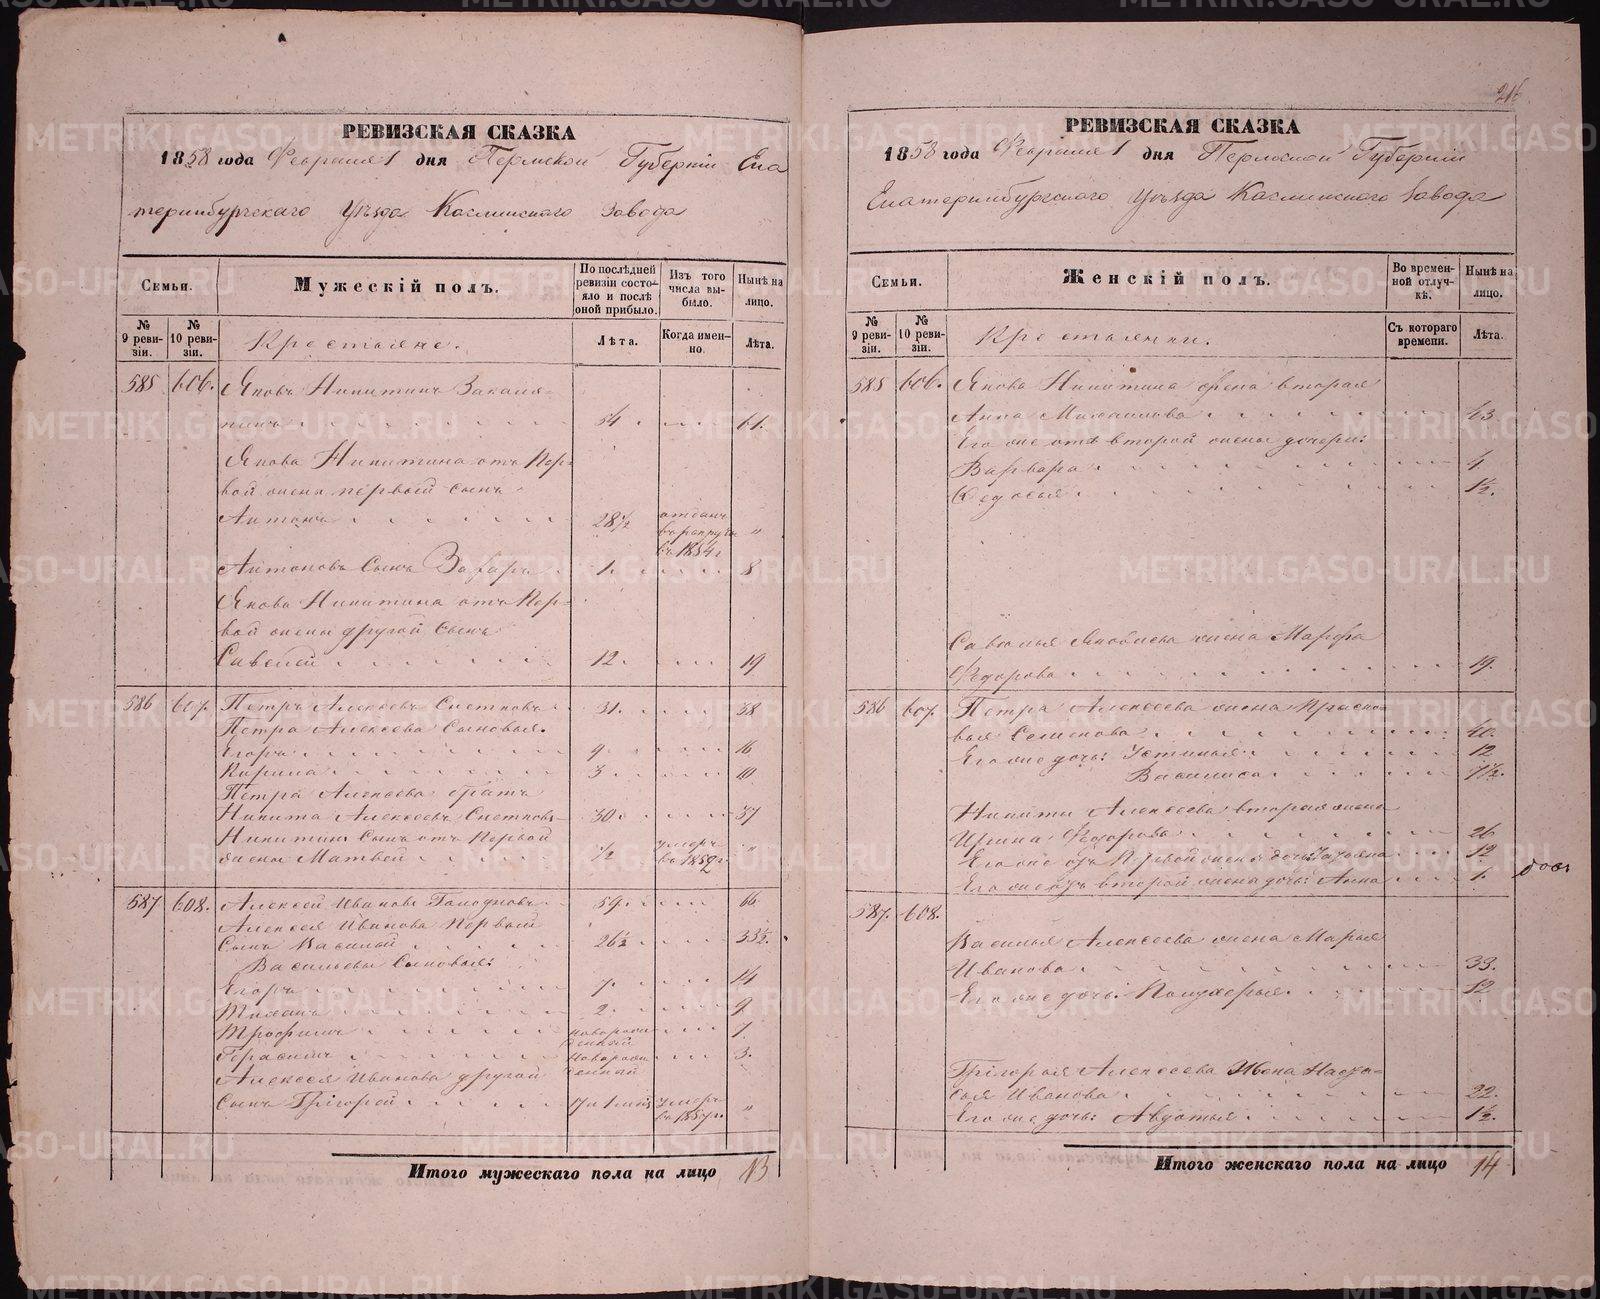 216
РЕВИЗСКАЯ СКАЗКА
1858 года Февраля 1 дня Пермской Губерніи Ека
теринбургскаго Уѣзда Каслинскаго Завода
Семьи.
Мужескій полъ.
По послѣдней ревизіи состояло и послѣ оной прибыло.
Изъ того числа выбыло.
Нынѣ на лицо.
№ 9 ревизіи.
№ 10 ревизіи.
Крестьяне.
Лѣта.
Когда именно.
Лѣта.
585 606. Яковъ Никитинъ
54 61.
Якова Никитина отъ Пер-
вой жены первый сынъ
Антонъ 28½ отданъ в рекруты въ 1854 г. "
Антоновъ Сынъ Захаръ 1. 8
Якова Никитина отъ Пер-
вой жены другой Сынъ
Савелій 12. 19
586 607. Петръ Алексѣевъ 31. 38
Петра Алексѣева Сыновья.
Егоръ 9. 16
Кирила 3 10
Петра Алексѣева братъ
Никита Алексѣевъ 30. 37
Никитинъ Сынъ отъ Первой
жены Матвей ½ умеръ въ 1852 г. "
587 608. Алексѣй Ивановъ 59. 66
Алексѣя Иванова Первый
Сынъ Василій 26½ 33½.
Васильевы Сыновья:
Егоръ 7. 14
2. 9
Трофимъ новорожденный 7.
Герасимъ новорожденный 3.
Алексѣя Иванова другой
Сынъ Григорей умеръ въ 1857 г. "
Итого мужескаго пола на лицо 13
РЕВИЗСКАЯ СКАЗКА
1858 года Февраля 1 дня Пермской Губерніи
Екатеринбургскаго Уѣзда Каслинскаго Завода
Семьи.
Женскій полъ.
Во временной отлучкѣ.
Нынѣ на лицо.
№ 9 ревизіи.
№ 10 ревизіи.
Крестьянки.
Съ котораго времени.
Лѣта.
585 606. Якова Никитина жена вторая
Анна Михаилова 43.
Его же отъ второй жены дочери:
Варвара 4
Федосья 1½.
Савелья Яковлева жена Марфа
Федорова 19.
586 607. Петра Алексѣева жена Праско-
вья Семенова 40.
Его же дочь: Устинья 12
Василиса 1½.
Никиты Алексѣева вторая жена
Ирина Федорова 26
Его же отъ Первой жены дочь: Татьяна 12
Его же отъ второй жены дочь: Анна 1.
587. 608.
Василья Алексѣева жена Марья
Иванова 33.
Его же дочь: Полухерья 12
Григорья Алексѣева Жена Наста-
сья Иванова 22.
Его же дочь: Авдотья 1½.
Итого женскаго пола на лицо 14
METRIKI.GASO-URAL.RU